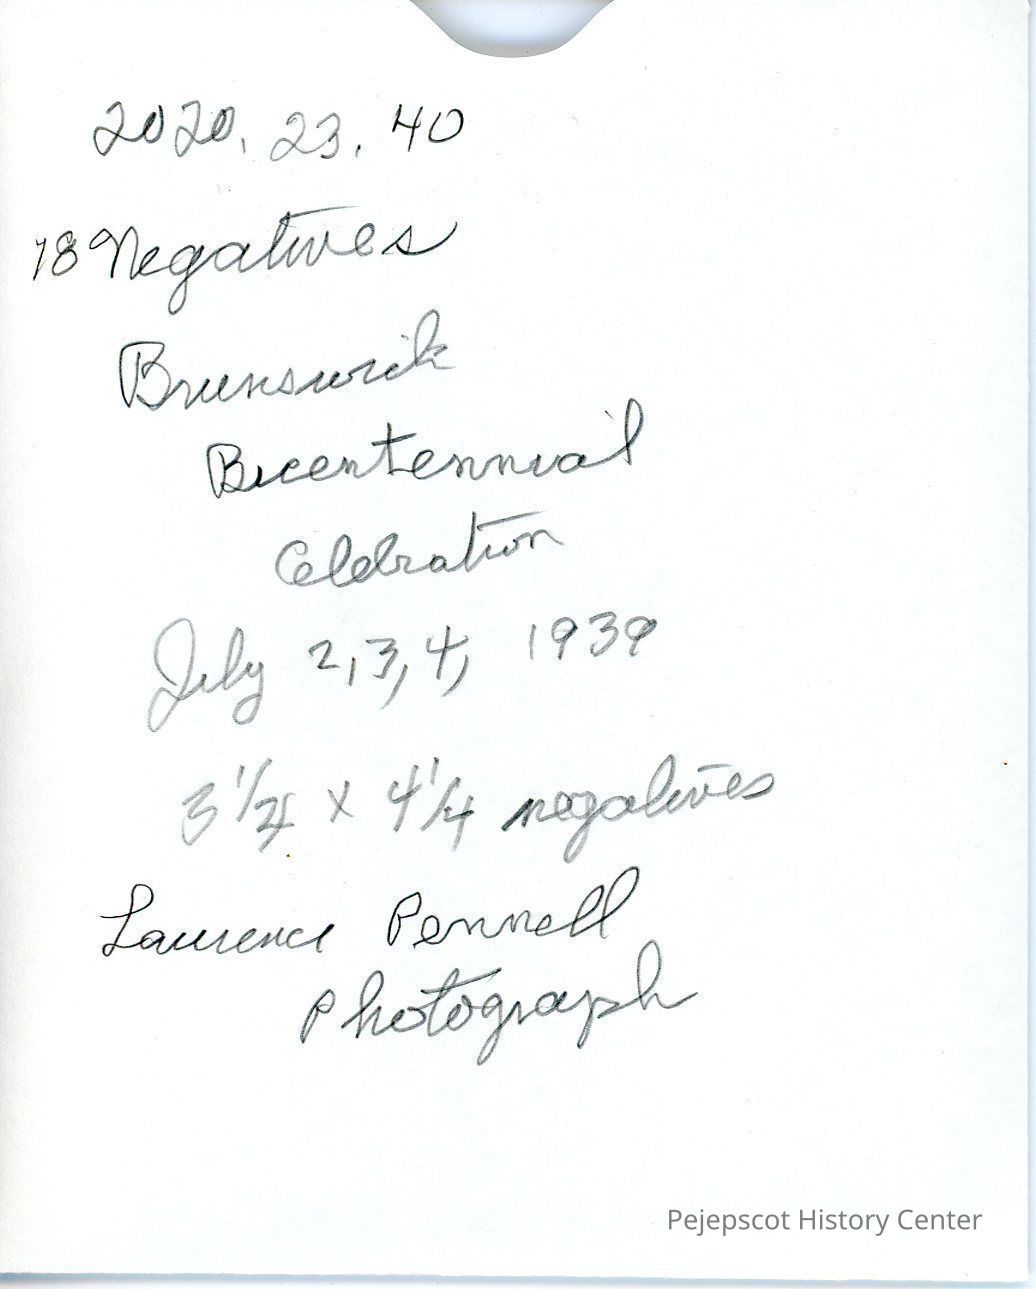 2020.23.40
18 Negatives
Brunswick
Bicentennial
Celebration
July 2, 3, 4, 1939
3 1/4 x 4 1/4 negatives
Laurence Pennell
Photograph
Pejepscot History Center